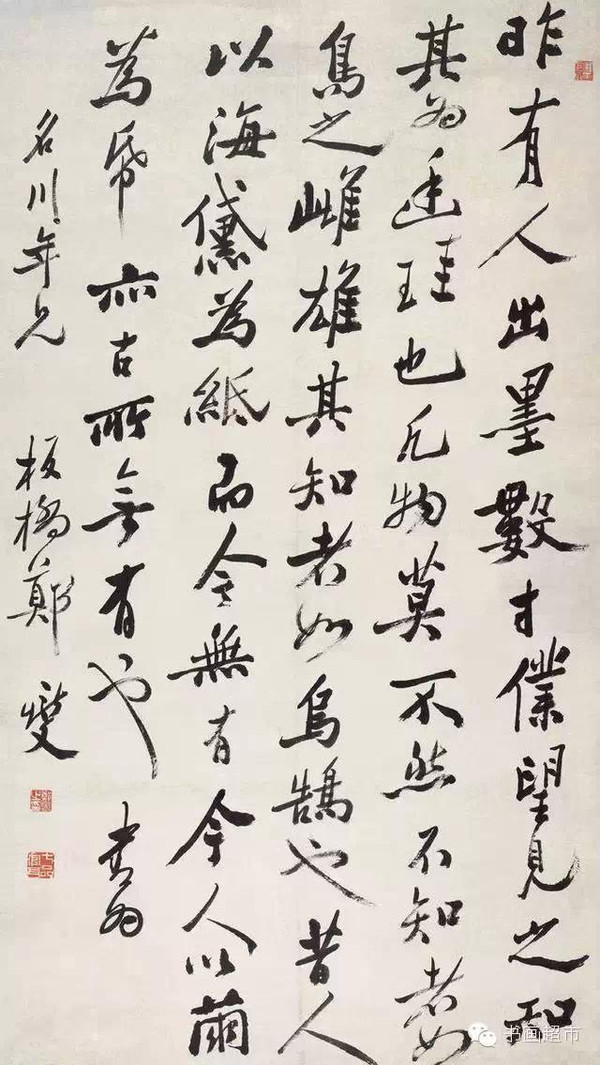 昨有人出墨數寸僕望見之知
其為廷珪也凡物莫不然不知者如
烏之雌雄其知者如烏鵠也昔人
以海黛為紙而今無有今人以繭
為帋亦古所無有也 書為
名川年兄 板橋鄭燮
书画超市